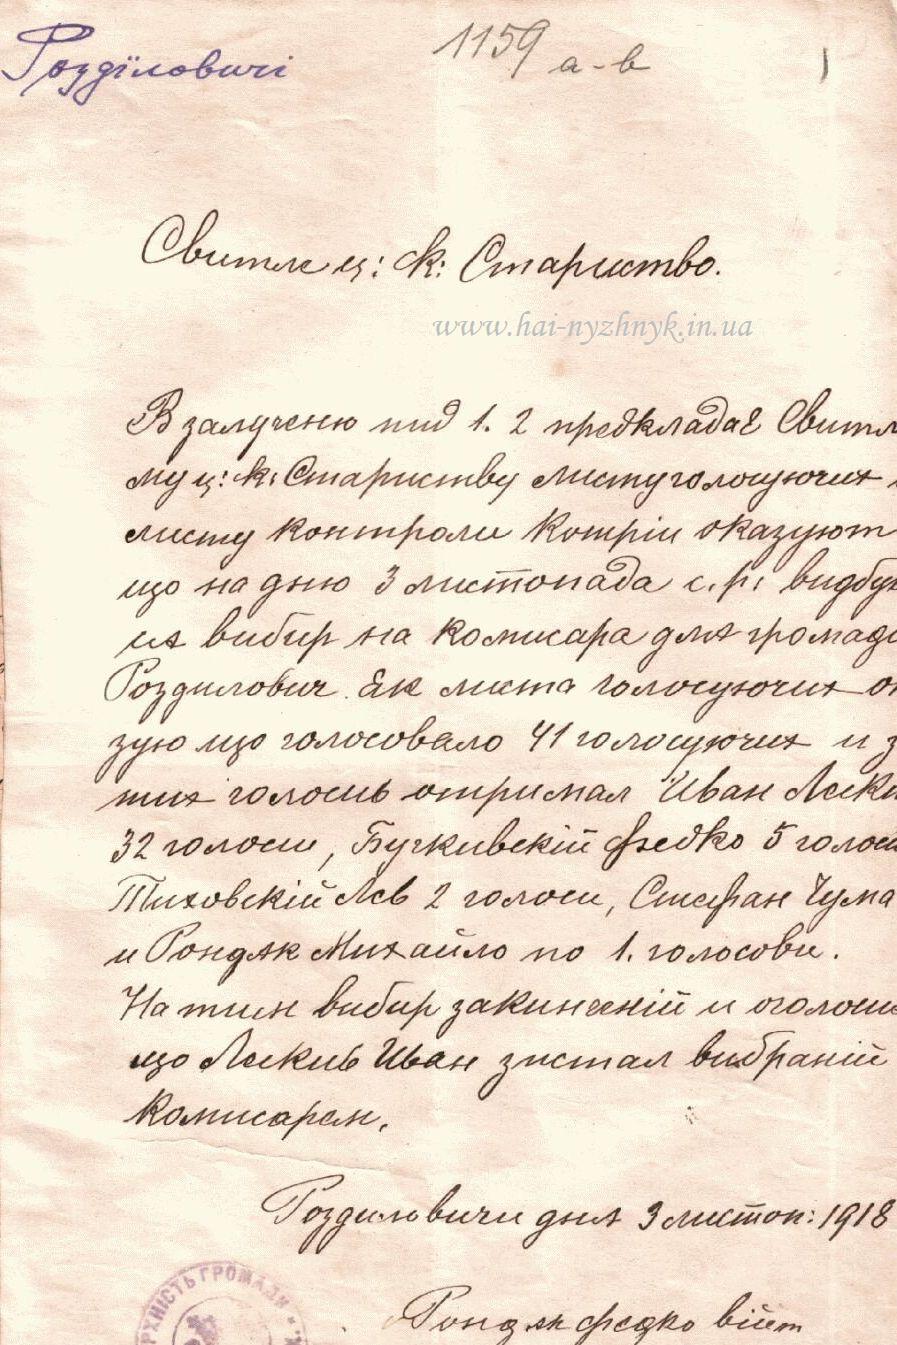 Розділовичі
1159
а-в
1
Свитле ц: к: Стариство.
www.hai-nyzhnyk.in.ua
В залученю пид 1. 2 предкладає Свитл
му ц: к: Стариству листу голосуючих
листу контроли котріи оказуют
що на дню 3 листопада с. р: видбу
ся вибир на комисара для громади
Роздилович. Як листа голосуючих ок
зую що голосовало 41 голосуючих и з
тих голосив отримал Иван Леки
32 голоси, Бучкивскій Федко 5 голос
Тиховскій Лев 2 голоси, Стефан Чума
и Рондяк Михайло по 1. голосови.
На тим вибир закинченій и оголоши
що Лекив Иван зистал вибраній
комисарем.
Роздиловичи дня 3 листоп: 1918
РХНІСТЬ ГРОМАДИ
Рондяк Федко війт